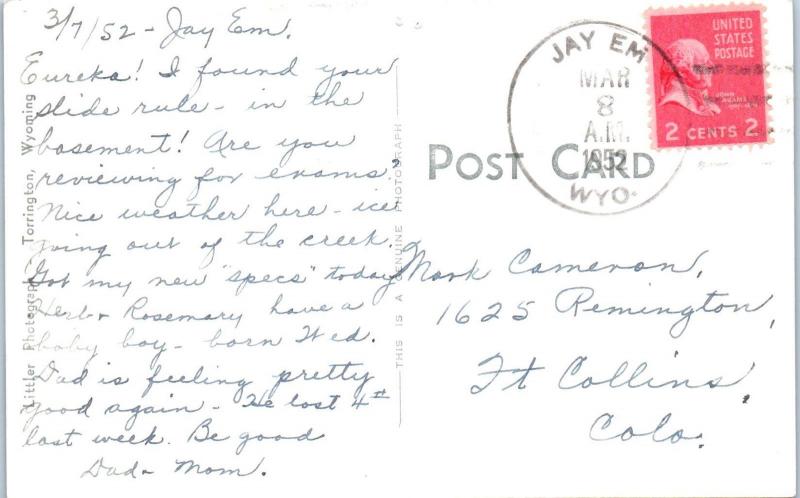 3/7/52 - Jay Em.
Eureka! I found your
slide rule - in the
basement! Are you
reviewing for exams?
Nice weather here - ice
going out of the creek.
Got my new "specs" today
Herb & Rosemary have a
baby boy - born Wed.
Dad is feeling pretty
good again - He lost 4#
last week. Be good
Dad & Mom.
Littler Photographer, Torrington, Wyoming
THIS IS A GENUINE PHOTOGRAPH
POST CARD
JAY EM
MAR
8
A.M.
1952
WYO.
UNITED
STATES
POSTAGE
JOHN
ADAMS
2 CENTS 2
Mark Cameron,
1625 Remington,
Ft Collins,
Colo.